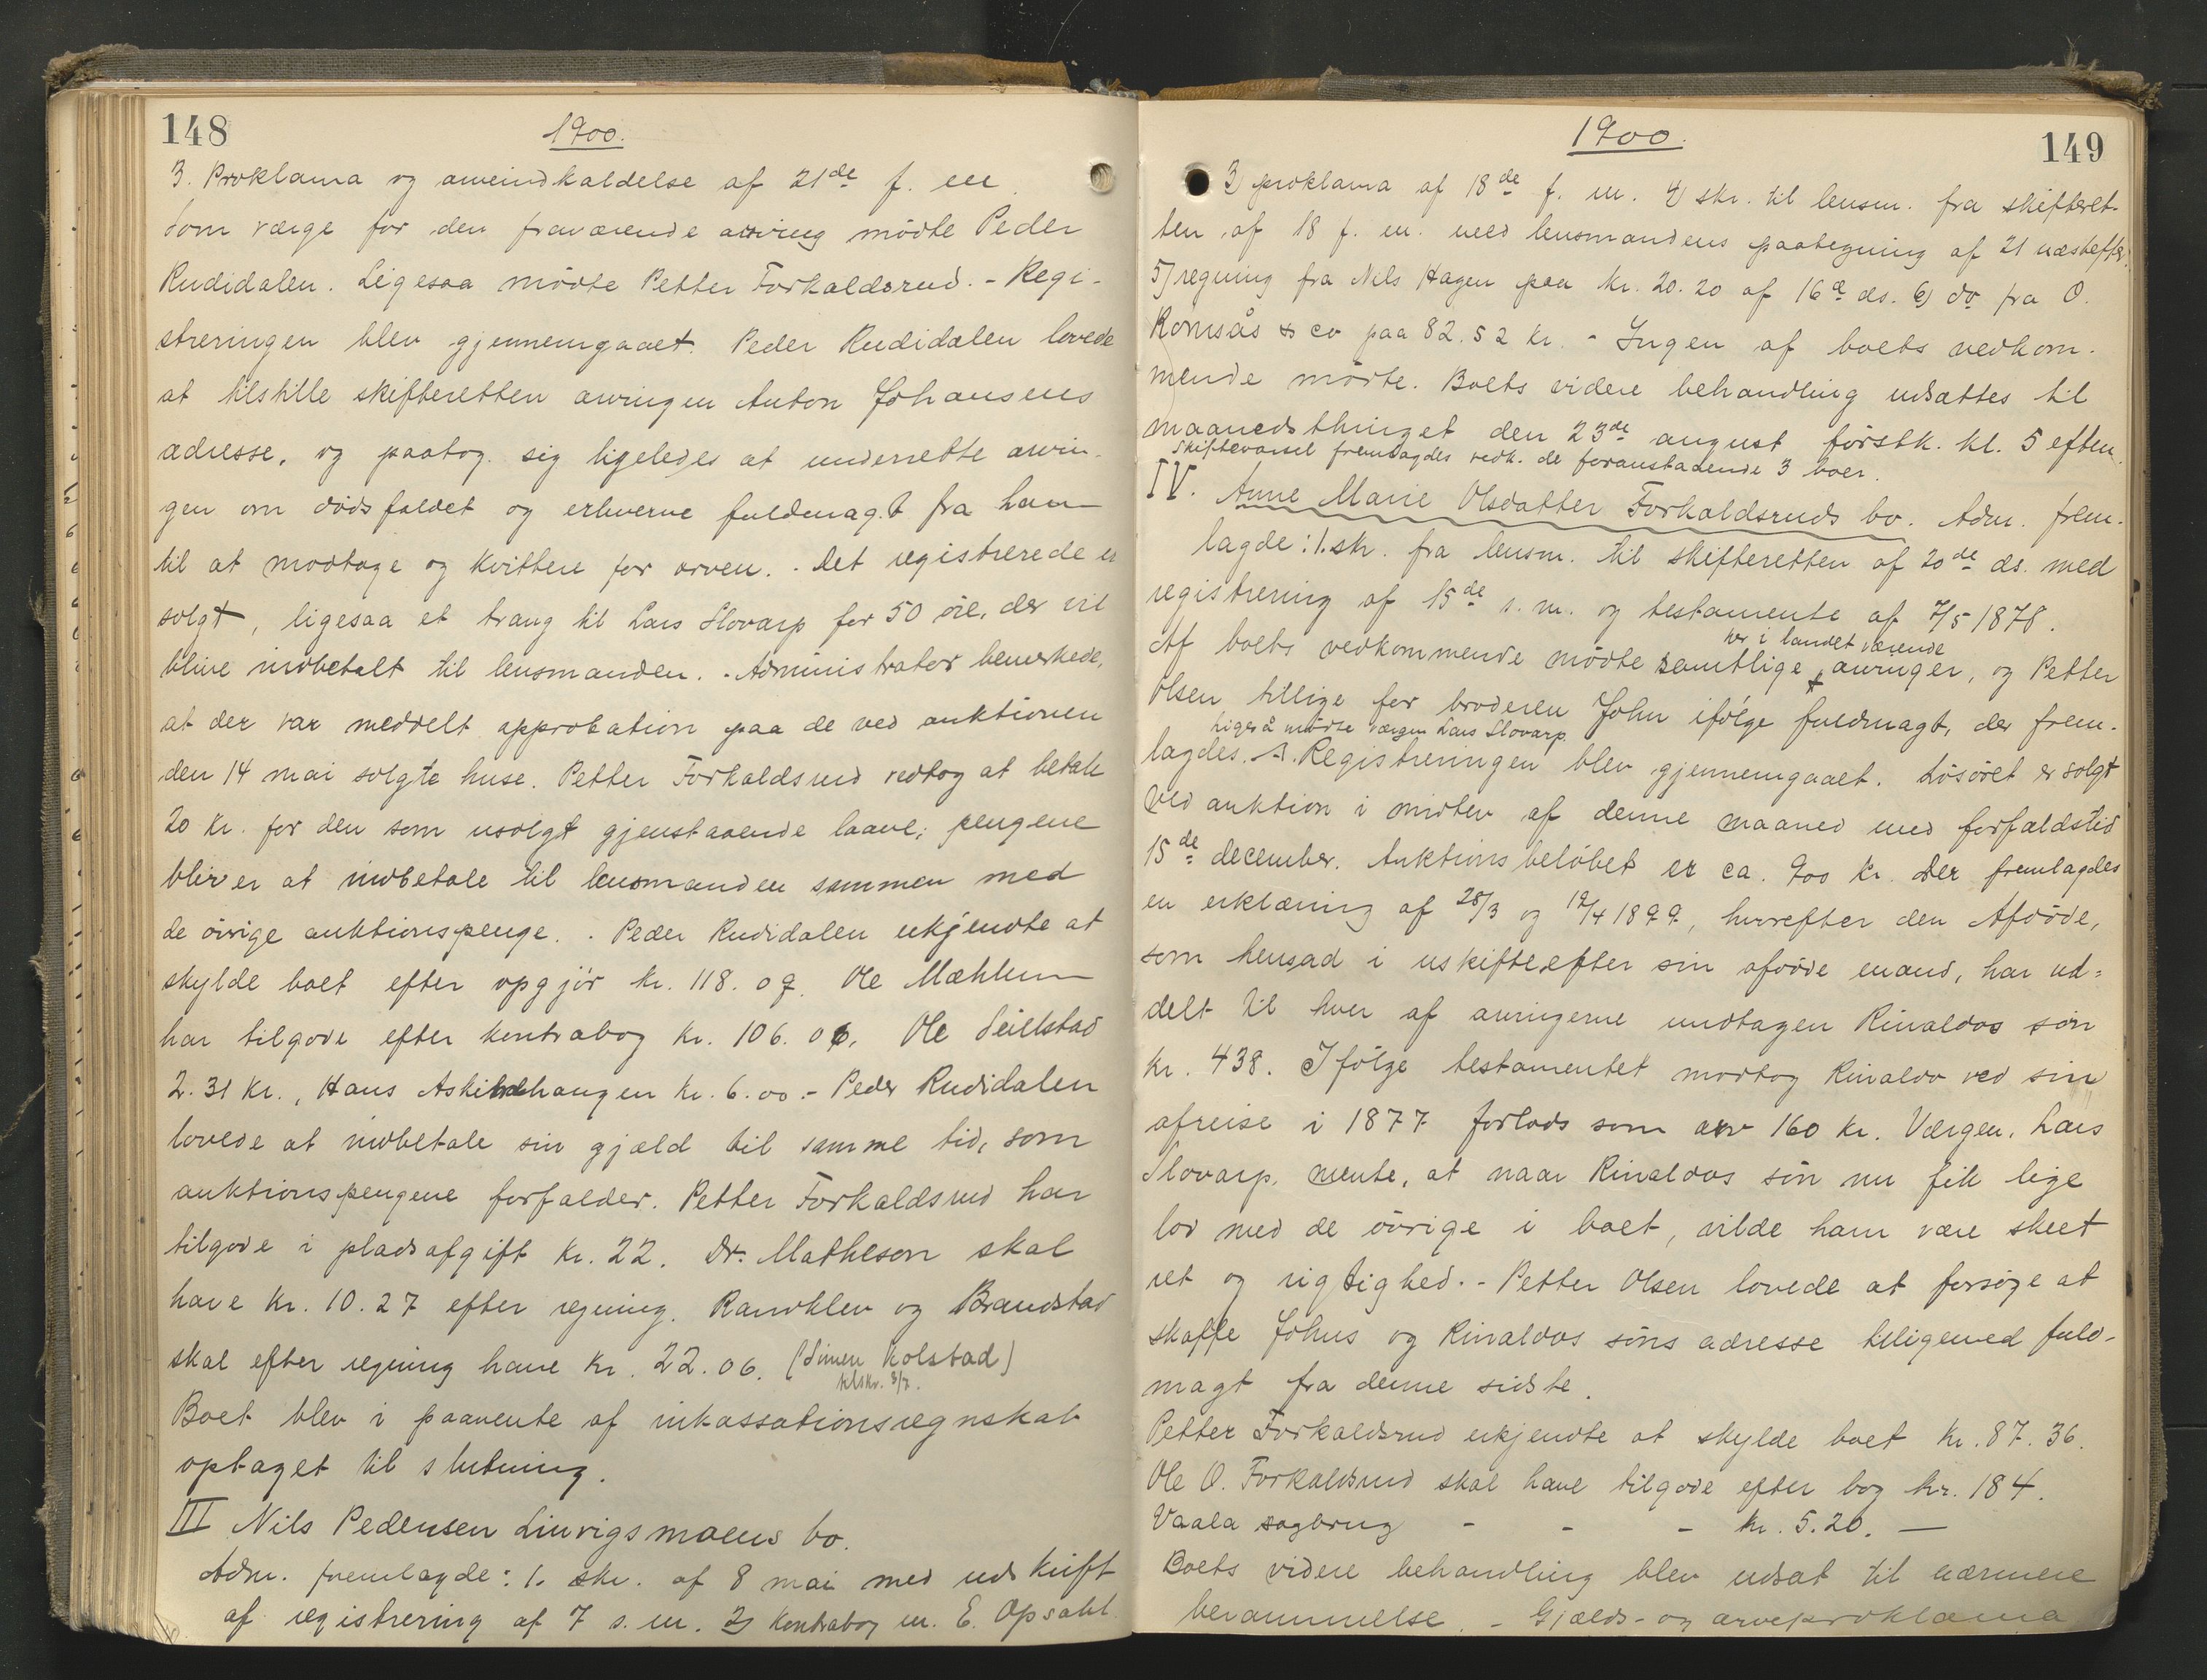 148
1900.
3. Proklama og arveindkaldelse af 21de f. m.
Som værge for den fraværende arving mödte Peder
Rudidalen. Ligesaa mödte Petter Forkaldsrud. - Regi-
streringen blev gjennemgaaet. Peder Rudidalen lovede
at tilstille skifteretten arvingen Anton Johansens
adresse, og paatog sig ligeledes at underrette arvin-
gen om dödsfaldet og erhverve fuldmagt fra ham
til at modtage og kvittere for arven. - Det registrerede er
solgt, ligesaa et traug til Lars Slovarp for 50 öre, der vil
blive indbetalt til lensmanden. - Administrator bemerkede,
at der var meddelt approbation paa de ved auktionen
den 14 mai solgte huse. Petter Forkaldsrud vedtog at betale
20 kr. for den som usolgt gjenstaaende laave; pengene
bliver at indbetale til lensmanden sammen med
de övrige auktionspenge. - Peder Rudidalen erkjendte at
skylde boet efter opgjör kr. 118.09. Ole Mæhlum
har tilgode efter kontrabog kr. 106.06. Ole Seielstad
2.31 kr., Hans Askilhaugen kr. 6.00. - Peder Rudidalen
lovede at indbetale sin gjæld til samme tid, som
auktionspengene forfalder. Petter Forkaldsrud har
tilgode i pladsafgift kr. 22. Dr. Matheson skal
have kr. 10.27 efter regning. Randklev og Brandstad
skal efter regning have kr. 22.06. (Simen Kolstad)
tilskr. 3/7.
Boet blev i paavente af inkassationsregnskab
optaget til slutning.
III Nils Pedersen Linvigsmoens bo.
Adm. fremlagde: 1. skr. af 8 mai med udskrift
af registrering af 7 s. m. 2) kontrabog m. E. Opsahl
149
1900.
3) proklama af 18de f. m. 4) skr. til lensm. fra skifteret-
ten af 18 f. m. med lensmandens paategning af 21 næstefter.
5) regning fra Nils Hagen paa kr. 20.20 af 16de ds. 6) do fra O.
Romsås & co paa 82.52 kr. - Ingen af boets vedkom-
mende mödte. Boets videre behandling udsættes til
maanedsthinget den 23de august förstk. kl. 5 efterm.
Skiftevarsel fremlagdes vedk. de foranstaaende 3 boer.
IV. Anne Marie Olsdatter Forkaldsruds bo. Adm. frem-
lagde: 1. skr. fra lensm. til skifteretten af 20de ds. med
registrering af 15de s. m. og testamente af 7/5 1878.
her i landet værende
Af boets vedkommende mödte samtlige arvinger, og Petter
Olsen tillige for broderen John ifölge fuldmagt, der frem-
Ligeså mödte værgen Lars Slovarp.
lagdes. Registreringen blev gjennemgaaet. Lösöret er solgt
ved auktion i midten af denne maaned med forfaldstid
15de december. Auktionsbelöbet er ca. 900 kr. Der fremlagdes
en erklæring af 28/3 og 19/4 1899, hvorefter den Afdöde,
som hensad i uskifte efter sin afdöde mand, har ud-
delt til hver af arvingerne undtagen Rinaldos sön
kr. 438. Ifölge testamentet modtog Rinaldo ved sin
afreise i 1877 forlods som arv 160 kr. Værgen, Lars
Slovarp, mente, at naar Rinaldos sön nu fik lige
lod med de övrige i boet, vilde ham være skeet
ret og rigtighed. - Petter Olsen lovede at forsöge at
skaffe Johns og Rinaldos söns adresse tilligemed fuld-
magt fra denne sidste.
Petter Forkaldsrud erkjendte at skylde boet kr. 87.36.
Ole O. Forkaldsrud skal have tilgode efter bog kr. 184.
Vaala sagbrug - - - kr. 5.20. —
Boets videre behandling blev udsat til nærmere
berammelse. - Gjælds- og arveproklama